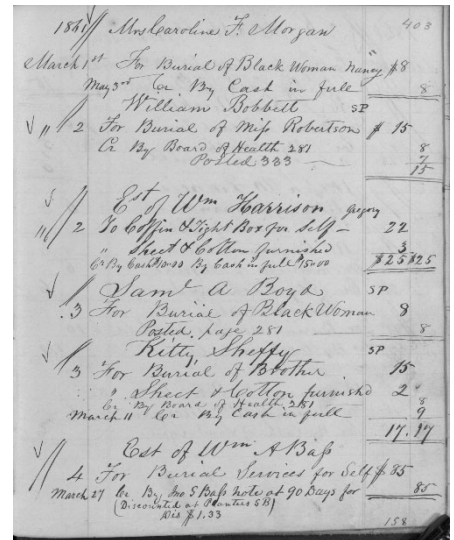 403
1861 Mrs Caroline F. Morgan
March 1st For Burial of Black Woman "Nancy" $8
May 3rd Cr By Cash in full 8
William Bobbett SP
" 2 For Burial of Miss Robertson $ 15
Cr By Board of Health 281 8
Posted 333 7
15
Est of Wm Harrison Gregory
" 2 To Coffin & Tight Box for self 22
" Sheet & Cotton furnished 3
Cr By Cash $10.00 By Cash in full $15.00 $25 $25
Saml A Boyd SP
3 For Burial of Black Woman 8
Posted page 281 8
Kitty Sheffy SP
3 For Burial of Brother 15
" Sheet & Cotton furnished 2
Cr By Board of Health 281 8
March 11 Cr By Cash in full 9
17.17
Est of Wm A Bass
4 For Burial Services for Self $85
March 27 Cr By Jno S Bass note at 90 Days for 85
(Discounted at Planters B)
Dis $1.33
158